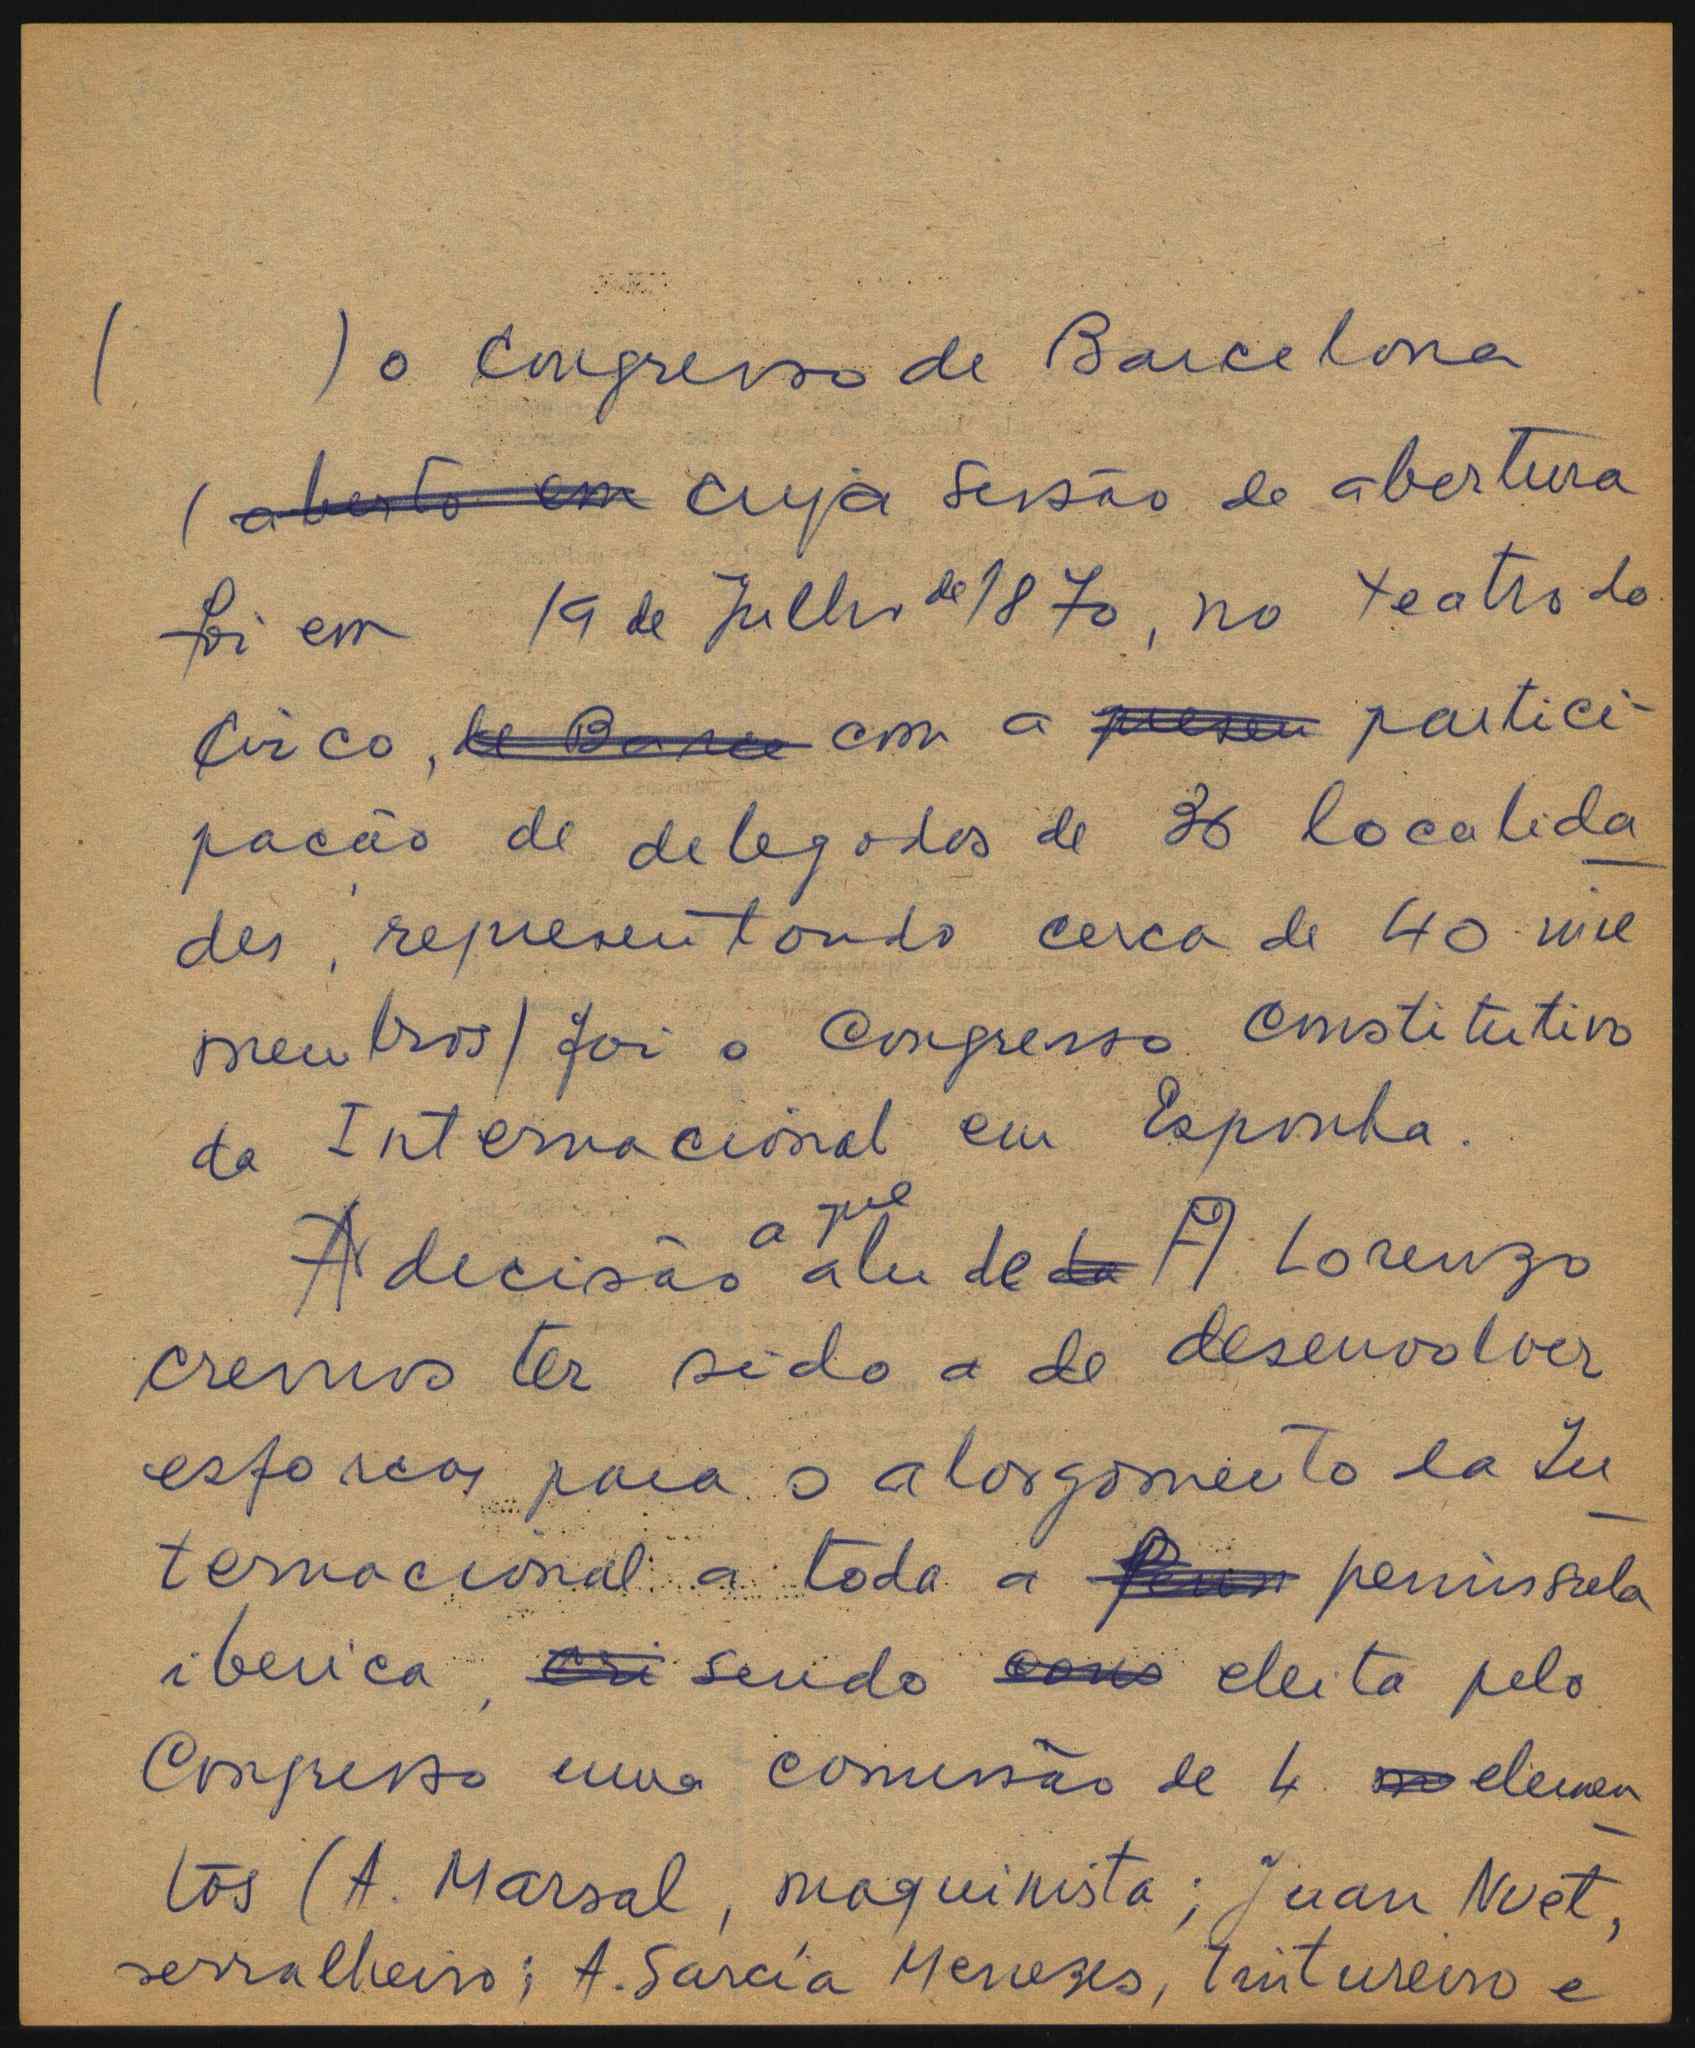 ( ) o Congresso de Barcelona
( aberto em cuja sessão de abertura
foi em 19 de Julho de 1870, no teatro do
Circo, de Barce com a presen partici-
pação de delegados de 36 localida
des, representando cerca de 40 mil
membros) foi o Congresso Constitutivo
da Internacional em Espanha.
A decisão a que alude da A. Lorenzo
cremos ter sido a de desenvolver
esforços para o alargamento da In
ternacional a toda a Penin peninsula
iberica, cri sendo como eleita pelo
Congresso uma comissão de 4 m elemen
tos (A. Marsal, maquinista; Juan Nuet,
serralheiro; A. Garcia Meneses, tintureiro e